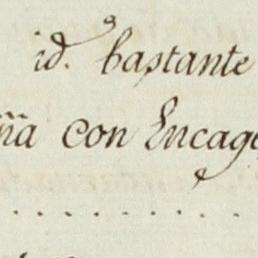 id. bastante
ña con Encage